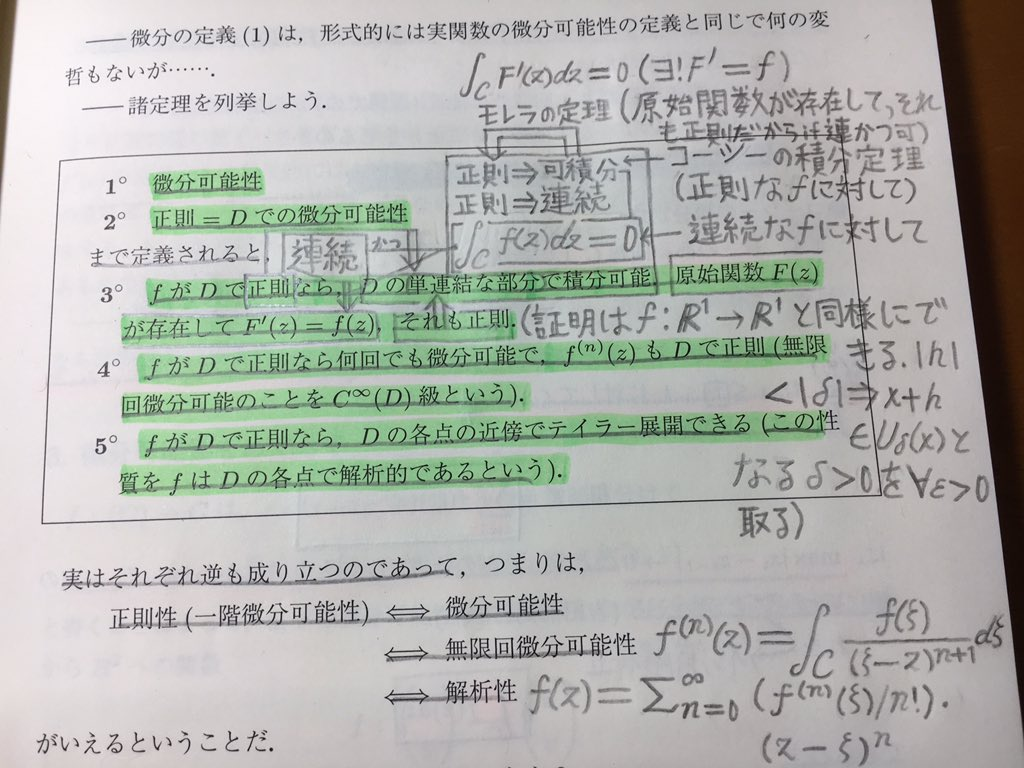 ── 微分の定義 (1) は，形式的には実関数の微分可能性の定義と同じで何の変
哲もないが……．
∫_C F'(z)dz=0 (∃!F'=f)
── 諸定理を列挙しよう．
モレラの定理 (原始関数が存在して、それ
も正則だからf連かつ可)
1° 微分可能性
正則⇒可積分
コーシーの積分定理
正則⇒連続
(正則なfに対して)
2° 正則 = D での微分可能性
まで定義されると，
連続 かつ
∫_C f(z)dz=0
連続なfに対して
3° f が D で正則なら，D の単連結な部分で積分可能，原始関数 F(z)
が存在して F'(z) = f(z)，それも正則．
(証明は f:R¹→R¹ と同様にで
きる. |h|
<|δ|⇒x+h
∈Uδ(x)と
なるδ>0を∀ε>0
取る)
4° f が D で正則なら何回でも微分可能で，f⁽ⁿ⁾(z) も D で正則 (無限
回微分可能のことを C^∞(D) 級という)．
5° f が D で正則なら，D の各点の近傍でテイラー展開できる (この性
質を f は D の各点で解析的であるという)．
実はそれぞれ逆も成り立つのであって，つまりは，
正則性 (一階微分可能性) ⟺ 微分可能性
⟺ 無限回微分可能性 f⁽ⁿ⁾(z)=∫_C f(ξ)/(ξ-z)^{n+1} dξ
⟺ 解析性 f(z)=Σ_{n=0}^∞ (f⁽ⁿ⁾(ξ)/n!)・
(z-ξ)ⁿ
がいえるということだ．